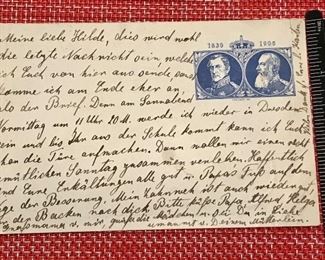 Meine liebe Hilde, dies wird wohl
die letzte Nachricht sein, welche
ich Euch von hier aus sende, sonst
komme ich am Ende eher an,
als der Brief. Denn am Sonnabend
Vormittag um 11 Uhr 20 M. werde ich wieder in Dresden
sein und bis Ihr aus der Schule kommt kann ich Euch
schon die Türe aufmachen. Dann wollen wir einen recht
gemütlichen Sonntag zusammen verleben. Hoffentlich
sind Eure Erkältungen alle gut u. Papas Fuß auf dem
Wege der Besserung. Mein Zahnweh ist auch wieder gut,
der Backen noch dick. Bitte küsse Papa, Alfred, Helga
Großmama v. mir, grüße die Mädchen u. sei Du in Liebe
umarmt v. Deinem Mütterlein.
1835 1905